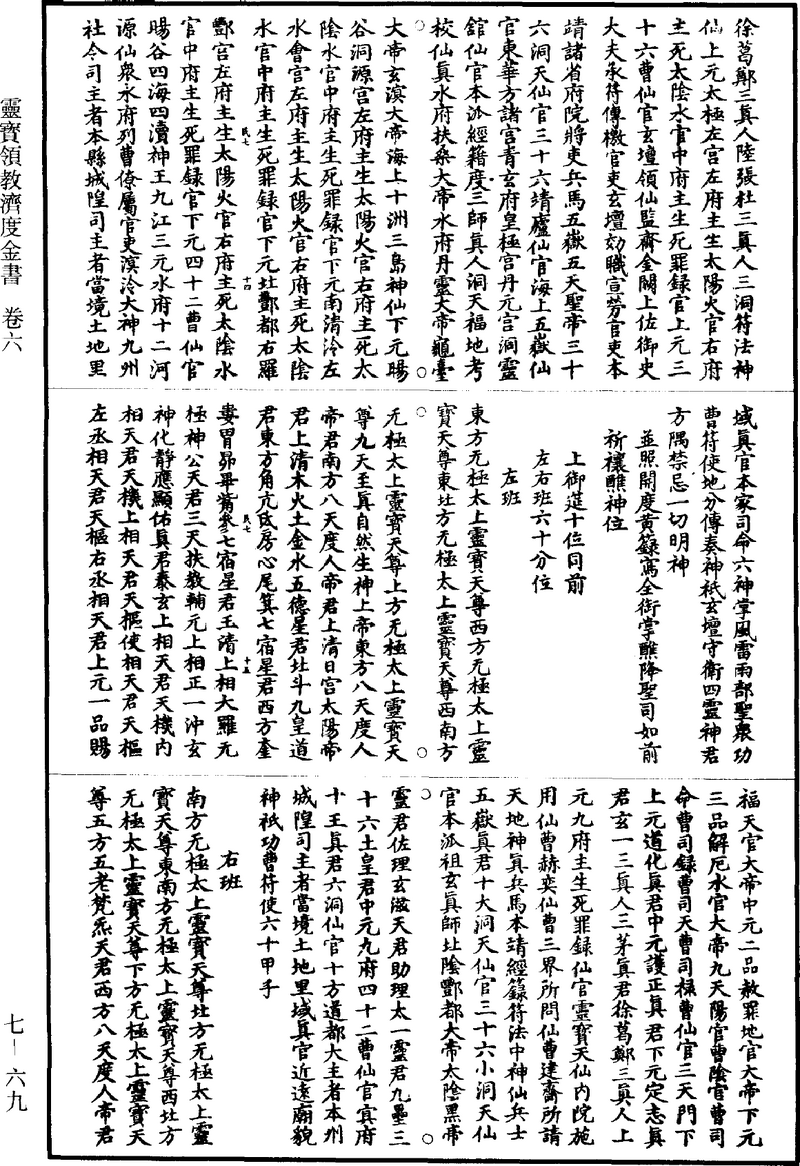 徐葛鄭三真人陸張杜三真人三洞符法神
仙上元太極左宫左府主生太陽火官右府
主死太陰水官中府主生死罪録官上元三
十六曹仙官玄壇領仙監齋金闕上佐御史
大夫承符傳檄官吏玄壇効職宣勞官吏本
靖諸省府院將吏兵馬五嶽五天聖帝三十
六洞天仙官三十六靖廬仙官海上五嶽仙
官東華方諸宫青玄府皇極宫丹元宫洞靈
舘仙官本派經籍度三師真人洞天福地考
校仙真水府扶桑大帝水府丹靈大帝龜臺
大帝玄溟大帝海上十洲三島神仙下元暘
谷洞源宫左府主生太陽火官右府主死太
陰水官中府主生死罪録官下元南清泠左
水會宫左府主生太陽火官右府主死太陰
水官中府主生死罪録官下元北酆都右羅
民七 十四
酆宫左府主生太陽火官右府主死太陰水
官中府主生死罪録官下元四十二曹仙官
暘谷四海四瀆神王九江三元水府十二河
源仙衆水府列曹僚屬官吏溟泠大神九州
社令司主者本縣城隍司主者當境土地里
域真官本家司命六神掌風雷雨部聖衆功
曹符使地分傳奏神祇玄壇守衛四靈神君
方隅禁忌一切明神
並照開度黄籙寫全銜掌醮降聖司如前
祈禳醮神位
上御筵十位同前
左右班六十分位
左班
東方无極太上靈寶天尊西方无極太上靈
寶天尊東北方无極太上靈寶天尊西南方
无極太上靈寶天尊上方无極太上靈寶天
尊九天王真自然生神上帝東方八天度人
帝君南方八天度人帝君上清日宫太陽帝
君上清木火土金水五德星君北斗九皇道
君東方角亢氐房心尾箕七宿星君西方奎
民七 十五
婁胃昴畢觜參七宿星君玉清上相大羅元
極神公天君三天扶教輔元上相正一沖玄
神化靜應顯佑真君泰玄上相天君天機内
相天君天機上相天君天樞使相天君天樞
左丞相天君天樞右丞相天君上元一品賜
福天官大帝中元二品赦罪地官大帝下元
三品解厄水官大帝九天陽官曹陰官曹司
命曹司録曹司天曹司禄曹仙官三天門下
上元道化真君中元護正真君下元定志真
君玄一三真人三茅真君徐葛鄭三真人上
元九府主生死罪録仙官靈寶天仙内院施
用仙曹赫奕仙曹三界所問仙曹建齋所請
天地神真兵馬本靖經籙符法中神仙兵士
五嶽真君十大洞天仙官三十六小洞天仙
官本派祖玄真師北陰酆都大帝太陰黑帝
靈君佐理玄滋天君助理太一靈君九壘三
十六土皇君中元九府四十二曹仙官冥府
十王真君六洞仙官十方道都大主者本州
城隍司主者當境土地里域真官近遠廟貌
神祇功曹符使六十甲子
右班
南方无極太上靈寶天尊北方无極太上靈
寶天尊東南方无極太上靈寶天尊西北方
无極太上靈寶天尊下方无極太上靈寶天
尊五方五老梵炁天君西方八天度人帝君
靈寶領教濟度金書 卷六
七－六九